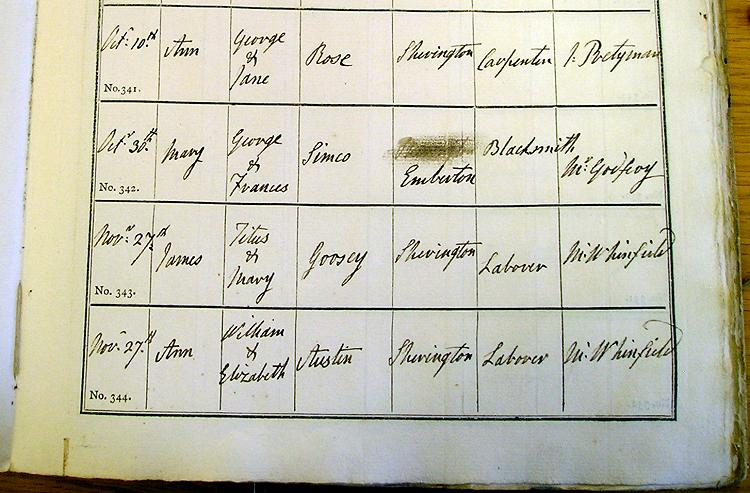 Octr. 10th Ann George & Jane Rose Shevington Carpenter J. Pretyman
No. 341.
Octr. 30th Mary George & Frances Simco Emberton Blacksmith Mr. Godfrey
No. 342.
Novr. 27th James Titus & Mary Goosey Shevington Labover Mr Whinfield
No. 343.
Novr. 27th Ann William & Elizabeth Austin Shevington Labover Mr Whinfield
No. 344.